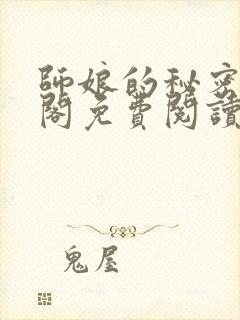 師娘的秘密
閣免費閱讀
鬼屋